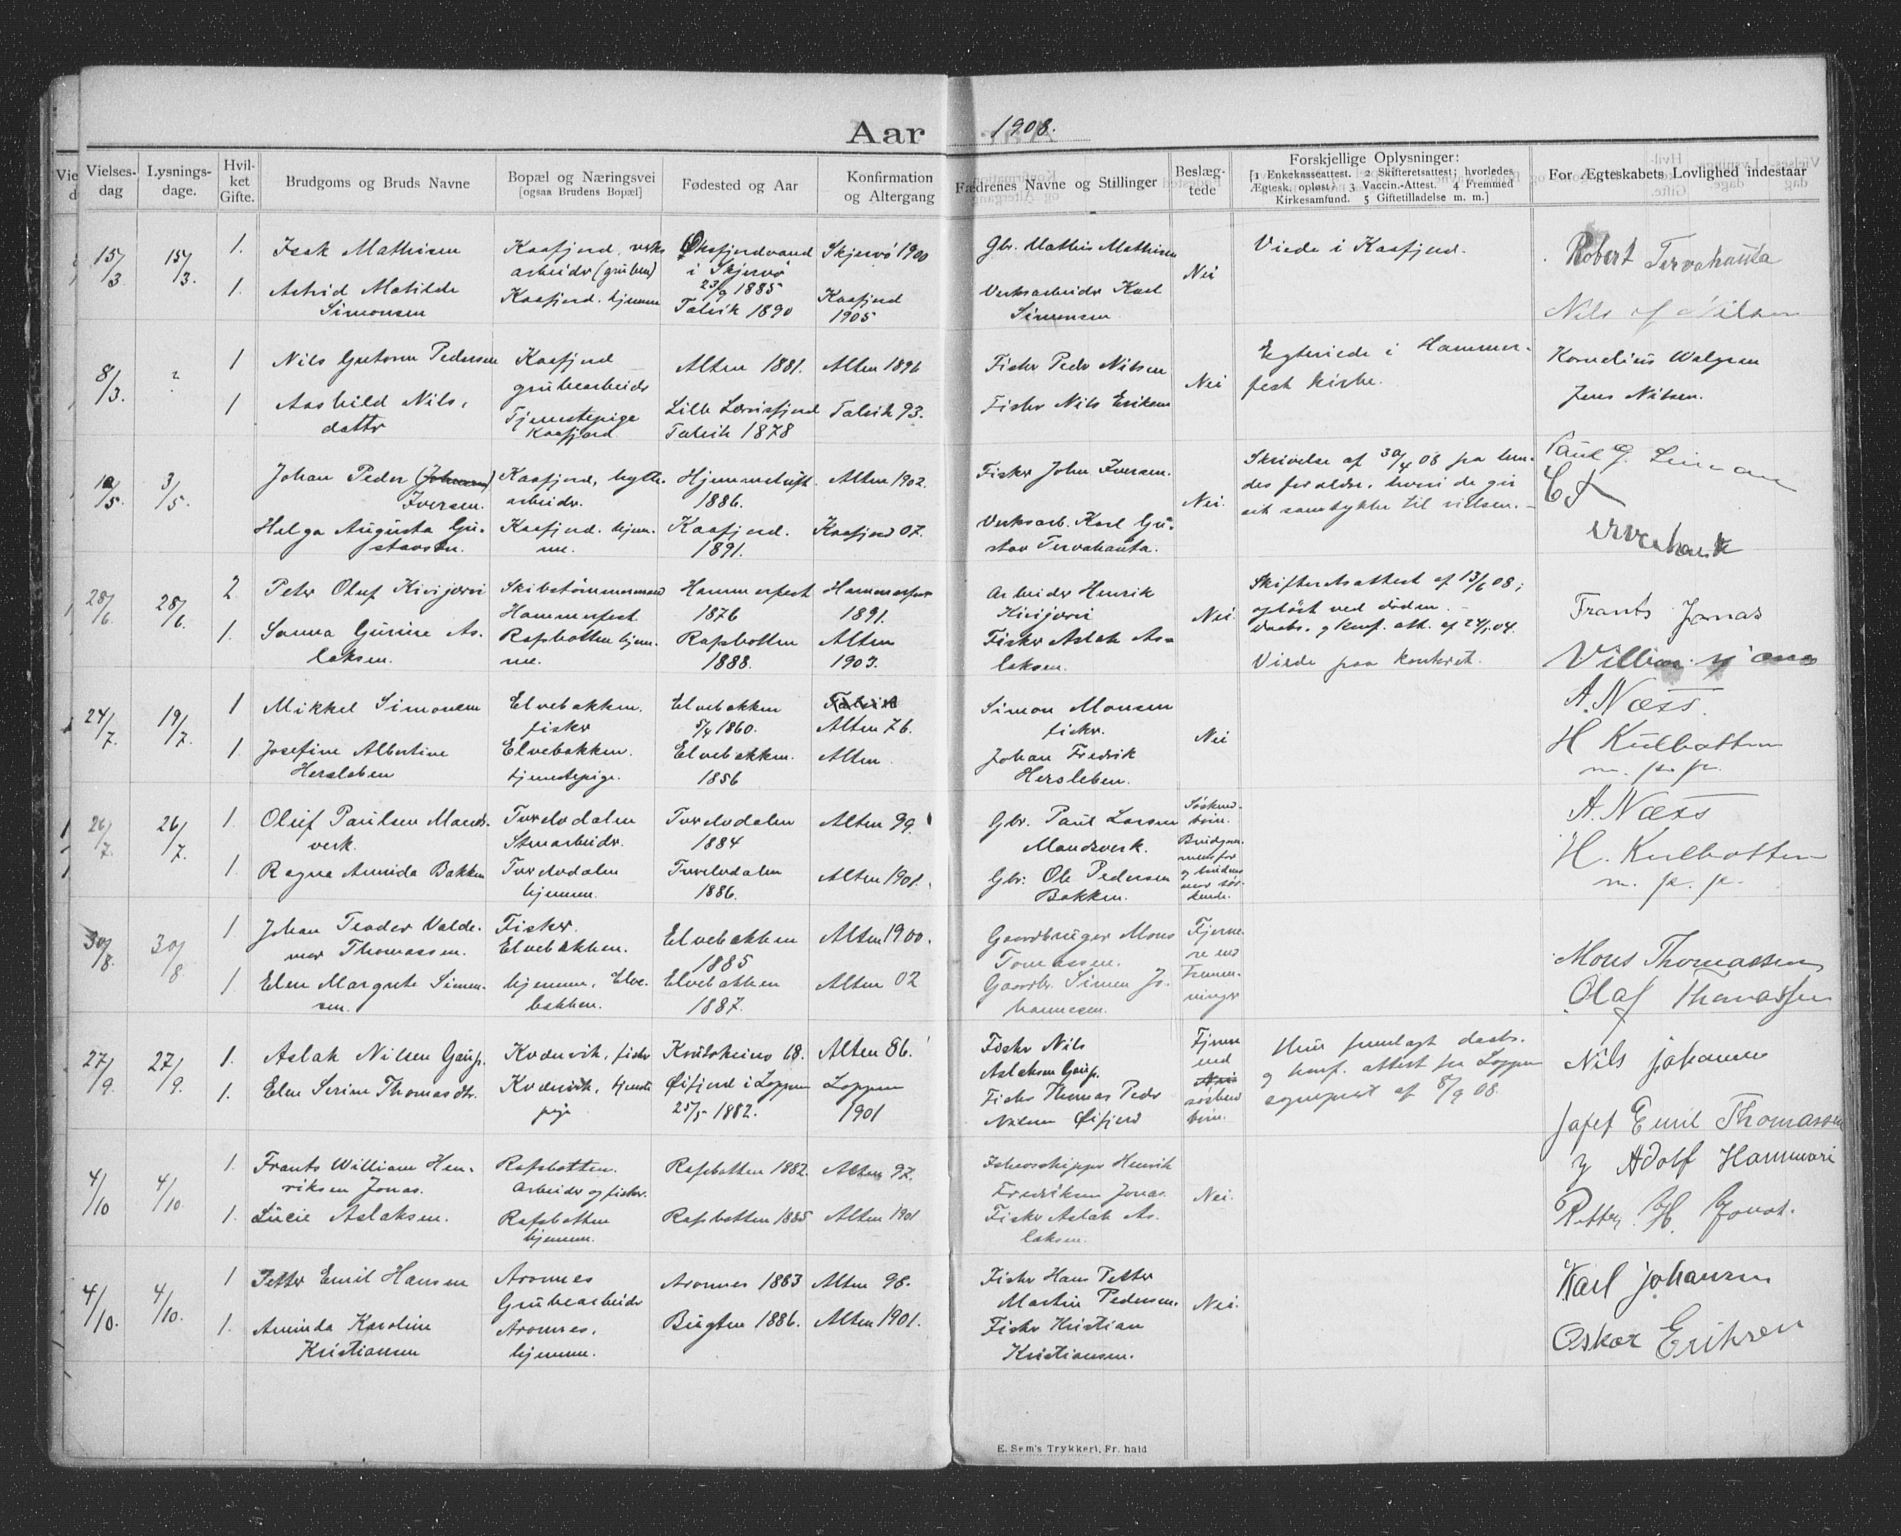 Aar 1908.
Vielses-dag
Lysnings-dage.
Hvil-ket Gifte.
Brudgoms og Bruds Navne
Bopæl og Næringsvei [ogsaa Brudens Bopæl]
Fødested og Aar
Konfirmation og Altergang
Fædrenes Navne og Stillinger
Beslæg-tede
Forskjellige Oplysninger:
[1 Enkekasseattest. 2 Skifteretsattest; hvorledes
Ægtesk. opløst; 3 Vaccin.-Attest. 4 Fremmed
Kirkesamfund. 5 Giftetilladelse m. m.]
For Ægteskabets Lovlighed indestaar
15/3 15/3. 1. Isak Mathisen Kaafjord, verks Øksfjordvand Skjervø 1900 Gbr. Mathis Mathisen Viede i Kaafjord. Robert Tervahauta
arbeider (gruben) i Skjervø Nei
23/9 1885
1. Astrid Matilde Kaafjord. hjemme Talvik 1890 Kaafjord Verksarbeider Karl
Simonsen 1905 Simonsen
8/3. ? 1 Nils Guttorm Pedersen Kaafjord Alten 1881. Alten 1896 Fisker Peder Nilsen Nei Egteviede i Hammer- Kornelius Walgren
grubearbeider fest kirke.
1 Aashild Nils, Tjenestepige Lille Talvik 93. Fisker Nils Eriksen Jens Nilsen.
datter Kaafjord Talvik 1878
10/5. 3/5. Johan Peder (Johnsen) Kaafjord, hytte- Hjemmeluft Alten 1902. Fisker John Iversen. Skrivelse af 30/4 08 fra
Iversen. arbeider. 1886. Nei. des forældre, hvori de gir
sit samtykke til vielsen.
Helga Augusta Gu- Kaafjord. hjem- Kaafjord. Kaafjord 07. Verksarb. Karl Gu-
stavsen. me. 1891. stav Tervahauta.
28/6 28/6. 2. Peter Oluf Kivijervi Skibstømmermand Hammerfest Hammerfest Arbeider Henrik Skifteretsattest af 13/6 08; Frants Jonas
Hammerfest 1876 1891. Kivijervi Nei. opløst ved døden.
1. Sanna Gurine As- Rafsbotten hjem- Rafsbotten Alten Fisker Aslak As- Daabs. og konf. att. af 24/1 04.
laksen. me. 1888. 1903. laksen. Viede paa kontoret.
24/7. 19/7. 1 Mikkel Simonsen Elvebakken. Elvebakken Talvik Simon Monsen A. Næss.
fisker 5/4 1860. Alten 76. fisker. Nei
1. Josefine Albertine Elvebakken. Elvebakken. Alten Johan Fredrik H Kulbotten
Hersleben tjenestepige. 1856 Hersleben. m. p. p.
26/7. 26/7. 1. Oluf Paulsen Mands- Tverelvdalen Tverelvdalen Alten 99. Gbr. Paul Larsen Søskend- A. Næss
verk. Stenarbeider. 1884 Mandsverk. børn.
1. Ragna Aminda Bakken Tverelvdalen Tverelvdalen Alten 1901. Gbr. Ole Pedersen H. Kulbotten
hjemme. 1886. Bakken. m. p. p.
30/8. 30/8 1. Johan Teodor Valde- Fisker. Elvebakken Alten 1900. Gaardbruger Mons Fjerne-
mar Thomassen. Elvebakken. 1885 Tomassen. re end Mons Thomassen
1 Elen Margrete Simon- hjemme, Elve- Elvebakken Alten 02 Gaardbr. Simon Jo- Fremmen- Olaf Thomassen
sen. bakken. 1887. hannesen.
27/9 27/9. 1. Aslak Nilsen Gaup. Kvænvik, fisker Kautokeino 68. Alten 86. Fisker Nils Fjerne Hun fremlagt daabs- Nils Johansen
Aslaksen Gaup. end og konf. attest fra Loppen
1. Elen Serine Thomasdtr. Kvænvik, tjeneste Øifjord i Loppen Loppen Fisker Thomas Peder Nei sogneprest af 8/9 08.
pige 25/5 1882. 1901 Nilsen Øifjord børn. Jafet Emil Thomassen
4/10 4/10. 1. Frants William Hen- Rafsbotten. Rafsbotten 1882. Alten 97. Henrik Adolf Hammari
riksen Jonas. Arbeider og fisker. Fredriksen Jonas Nei.
1. Lucie Aslaksen. Rafsbotten Rafsbotten 1885 Alten 1901 Fisker Aslak As- H.
hjemme. laksen.
4/10. 4/10. 1 Petter Emil Hansen Aronnes Aronnes 1883 Alten 98. Fisker Hans Petter Karl Johansen
Grubearbeider Martin Pedersen. Nei.
1. Aminda Karoline Aronnes. Bugten 1886. Alten 1901. Fisker Kristian Oskar Eriksen
Kristiansen hjemme. Kristiansen.
E. Sem's Trykkeri, Fr. hald